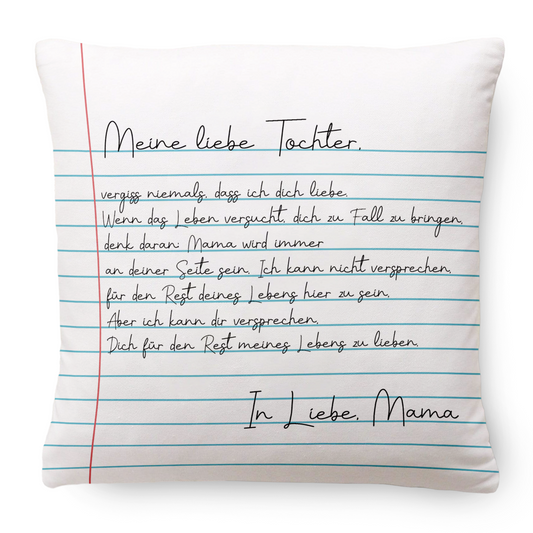 Meine liebe Tochter,
vergiss niemals, dass ich dich liebe.
Wenn das Leben versucht, dich zu Fall zu bringen,
denk daran: Mama wird immer
an deiner Seite sein. Ich kann nicht versprechen,
für den Rest deines Lebens hier zu sein.
Aber ich kann dir versprechen,
Dich für den Rest meines Lebens zu lieben.
In Liebe, Mama